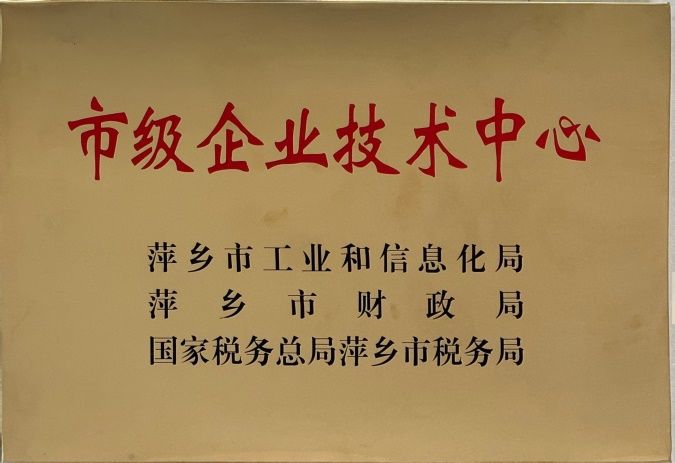 市级企业技术中心
萍乡市工业和信息化局
萍乡市财政局
国家税务总局萍乡市税务局